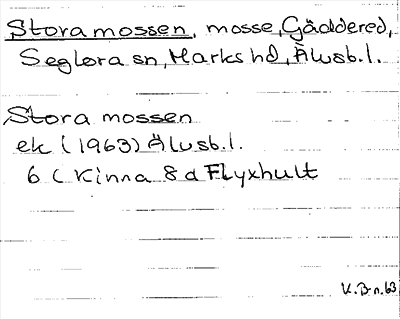 Stora mossen, mosse, Gäddered,
Seglora sn, Marks hd, Älvsb.l.
Stora mossen
ek (1963) Älvsb.l.
6 C Kinna 8 d Flyxhult
K.D-n.63